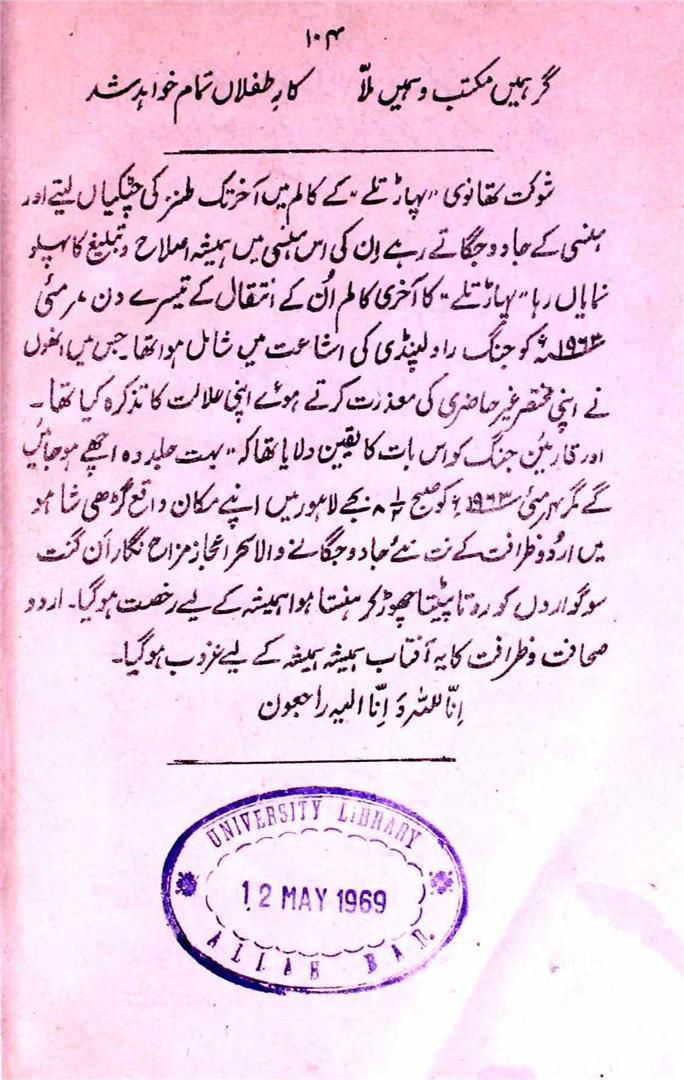 ۱۰۴
گر ہمیں مکتب و ہمیں ملّا کارِ طفلاں تمام خواہد شد
شوکت تھانوی "پہاڑ تلے" کے کالم میں آخر تک طنز کی چٹکیاں لیتے اور
ہنسی کے جادو جگاتے رہے اِن کی اس ہنسی میں ہمیشہ اصلاح و تبلیغ کا پہلو
نمایاں رہا "پہاڑ تلے" کا آخری کالم اُن کے انتقال کے تیسرے دن ۷ر مئی
۱۹۶۳ء کو جنگ راولپنڈی کی اشاعت میں شامل ہوا تھا۔ جس میں انھوں
نے اپنی مختصر غیر حاضری کی معذرت کرتے ہوئے اپنی علالت کا تذکرہ کیا تھا۔
اور قارئین جنگ کو اس بات کا یقین دلایا تھا کہ "بہت جلد وہ اچھے ہو جائیں
گے مگر ۴ر مئی ۱۹۶۳ء کو صبح ۸½ بجے لاہور میں اپنے مکان واقع گڑھی شاہو
میں اُردو ظرافت کے نت نئے جادو جگانے والا سحر اعجاز مزاح نگار اَن گنت
سوگواروں کو روتا پیٹتا چھوڑ کر ہنستا ہوا ہمیشہ کے لیے رخصت ہو گیا۔ اردو
صحافت و ظرافت کا یہ آفتاب ہمیشہ ہمیشہ کے لیے غروب ہو گیا۔
اِنّا للہِ وَ اِنّا الیہ راجعون
UNIVERSITY LIBRARY
12 MAY 1969
ALLAHABAD.